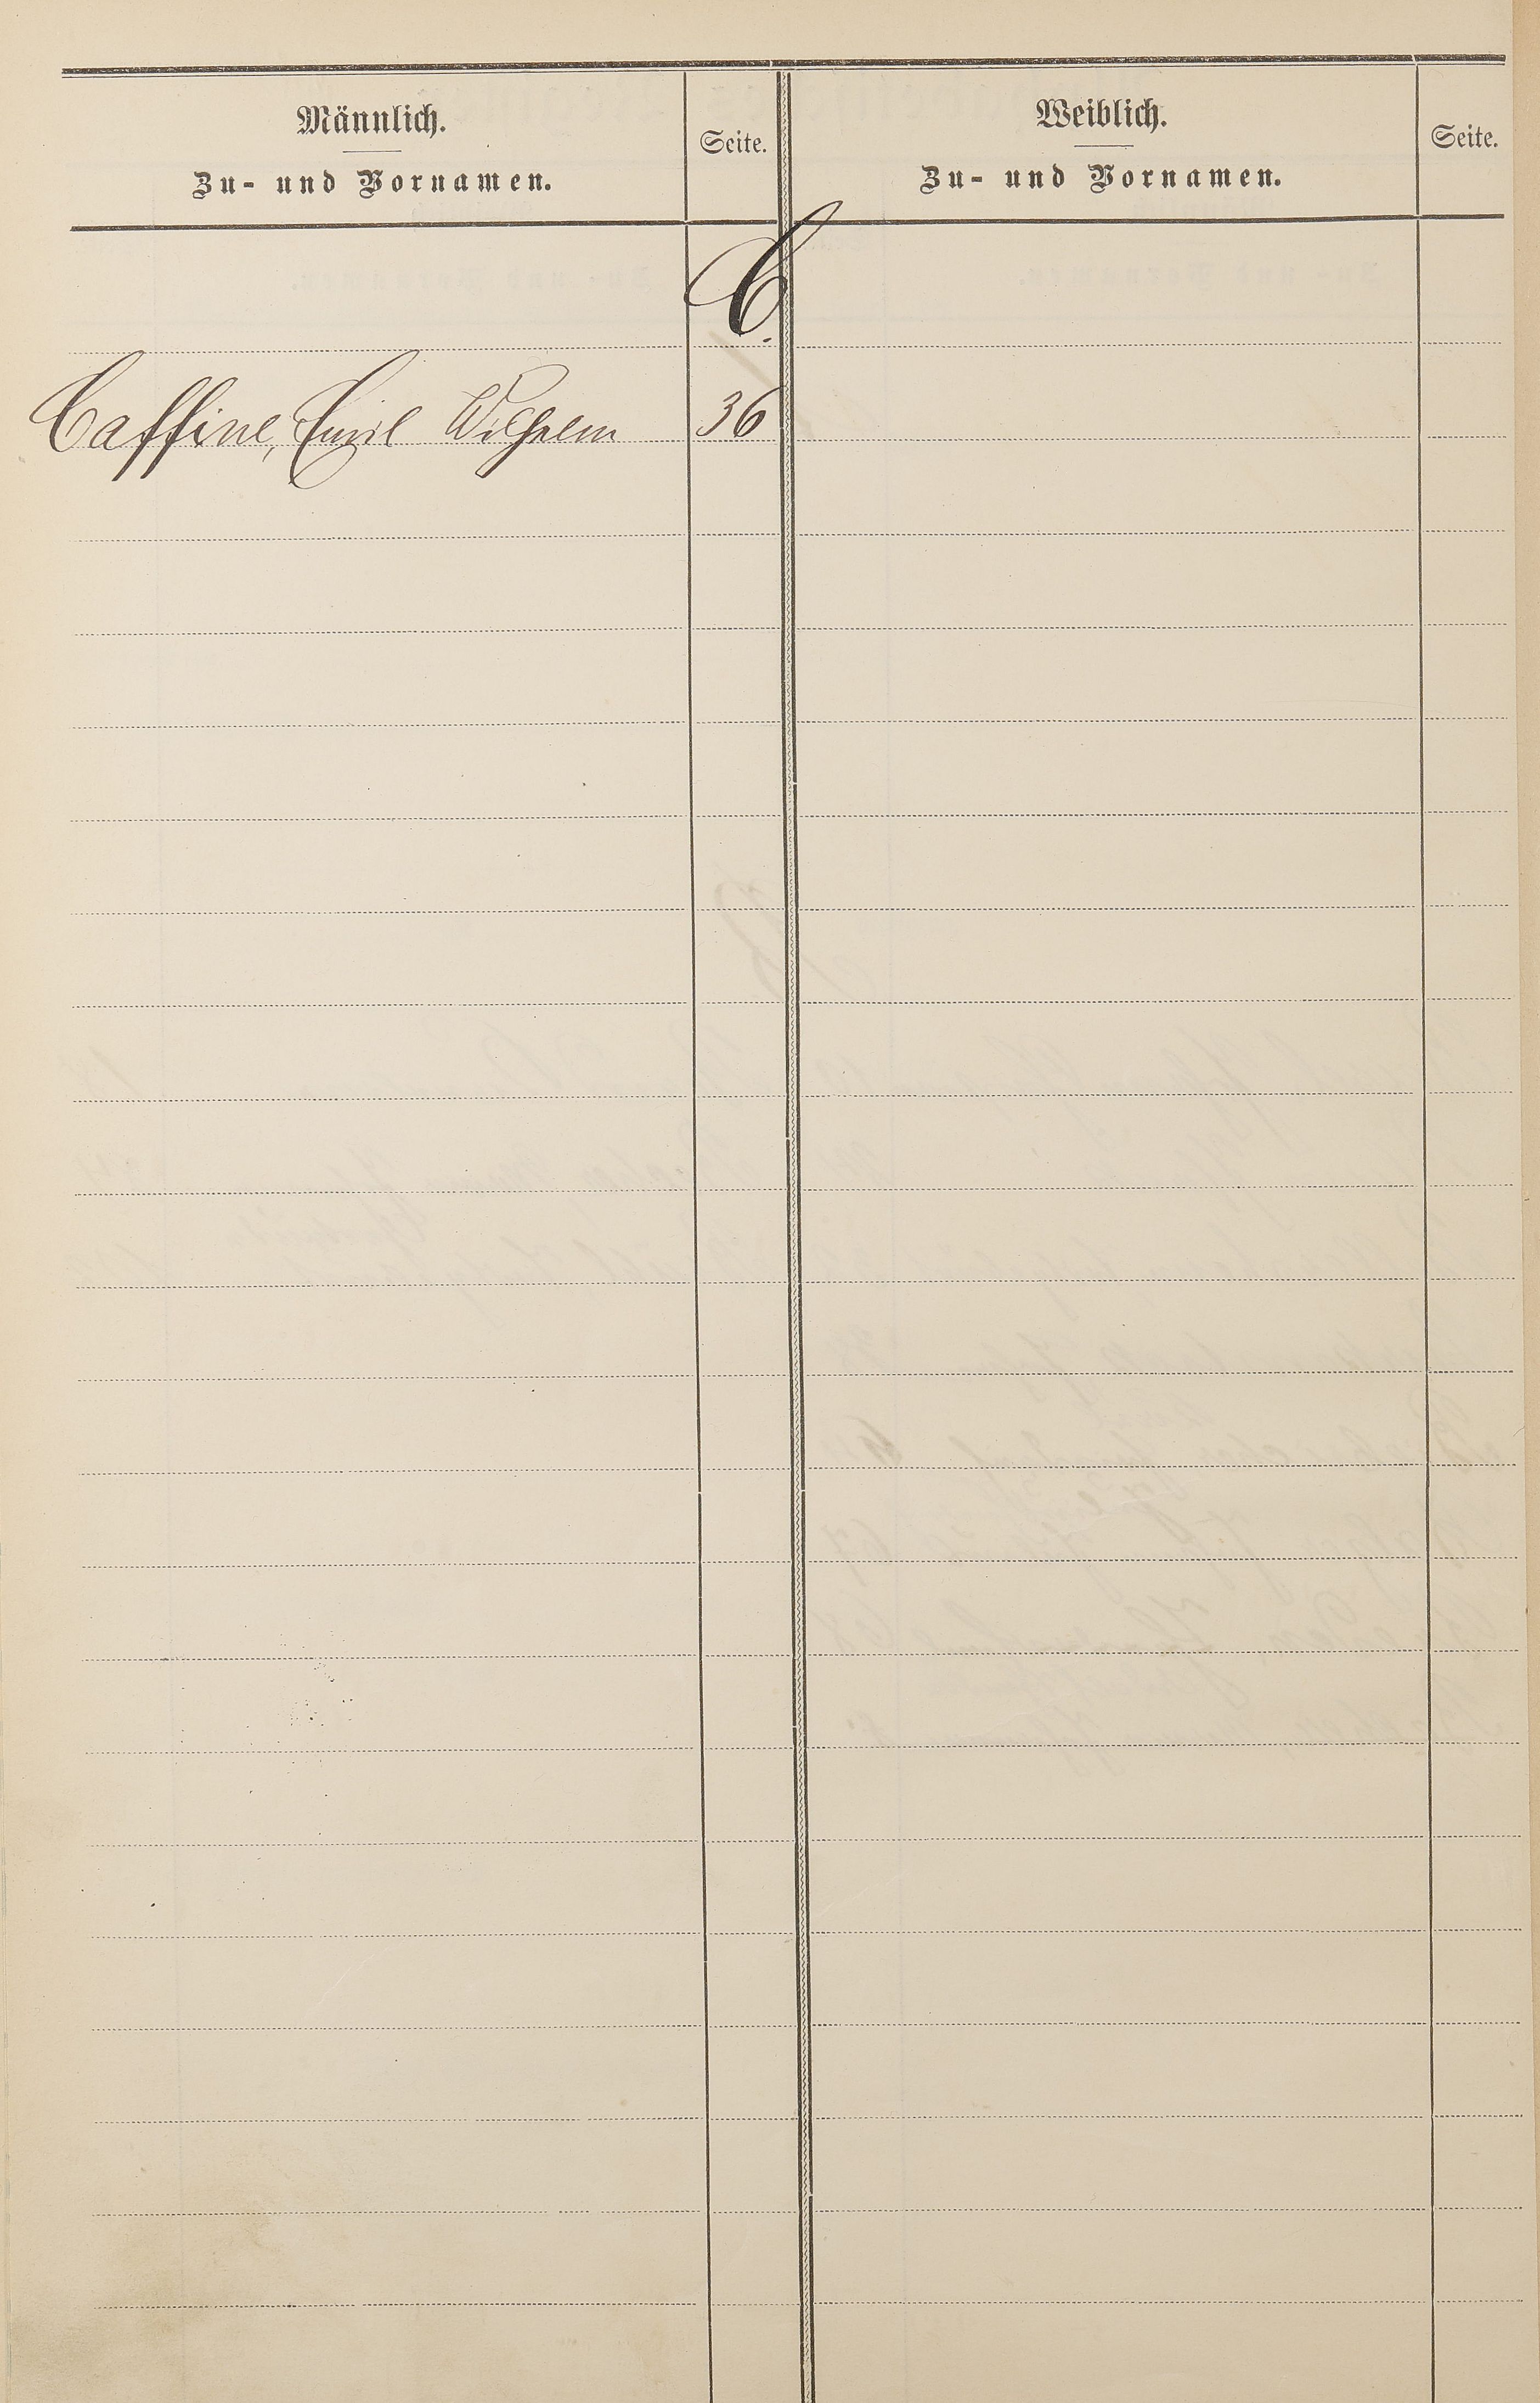 Männlich.
Zu- und Vornamen.
Seite.
Weiblich.
Zu- und Vornamen.
Seite.
C.
Caffine, Emil Wilhelm 36